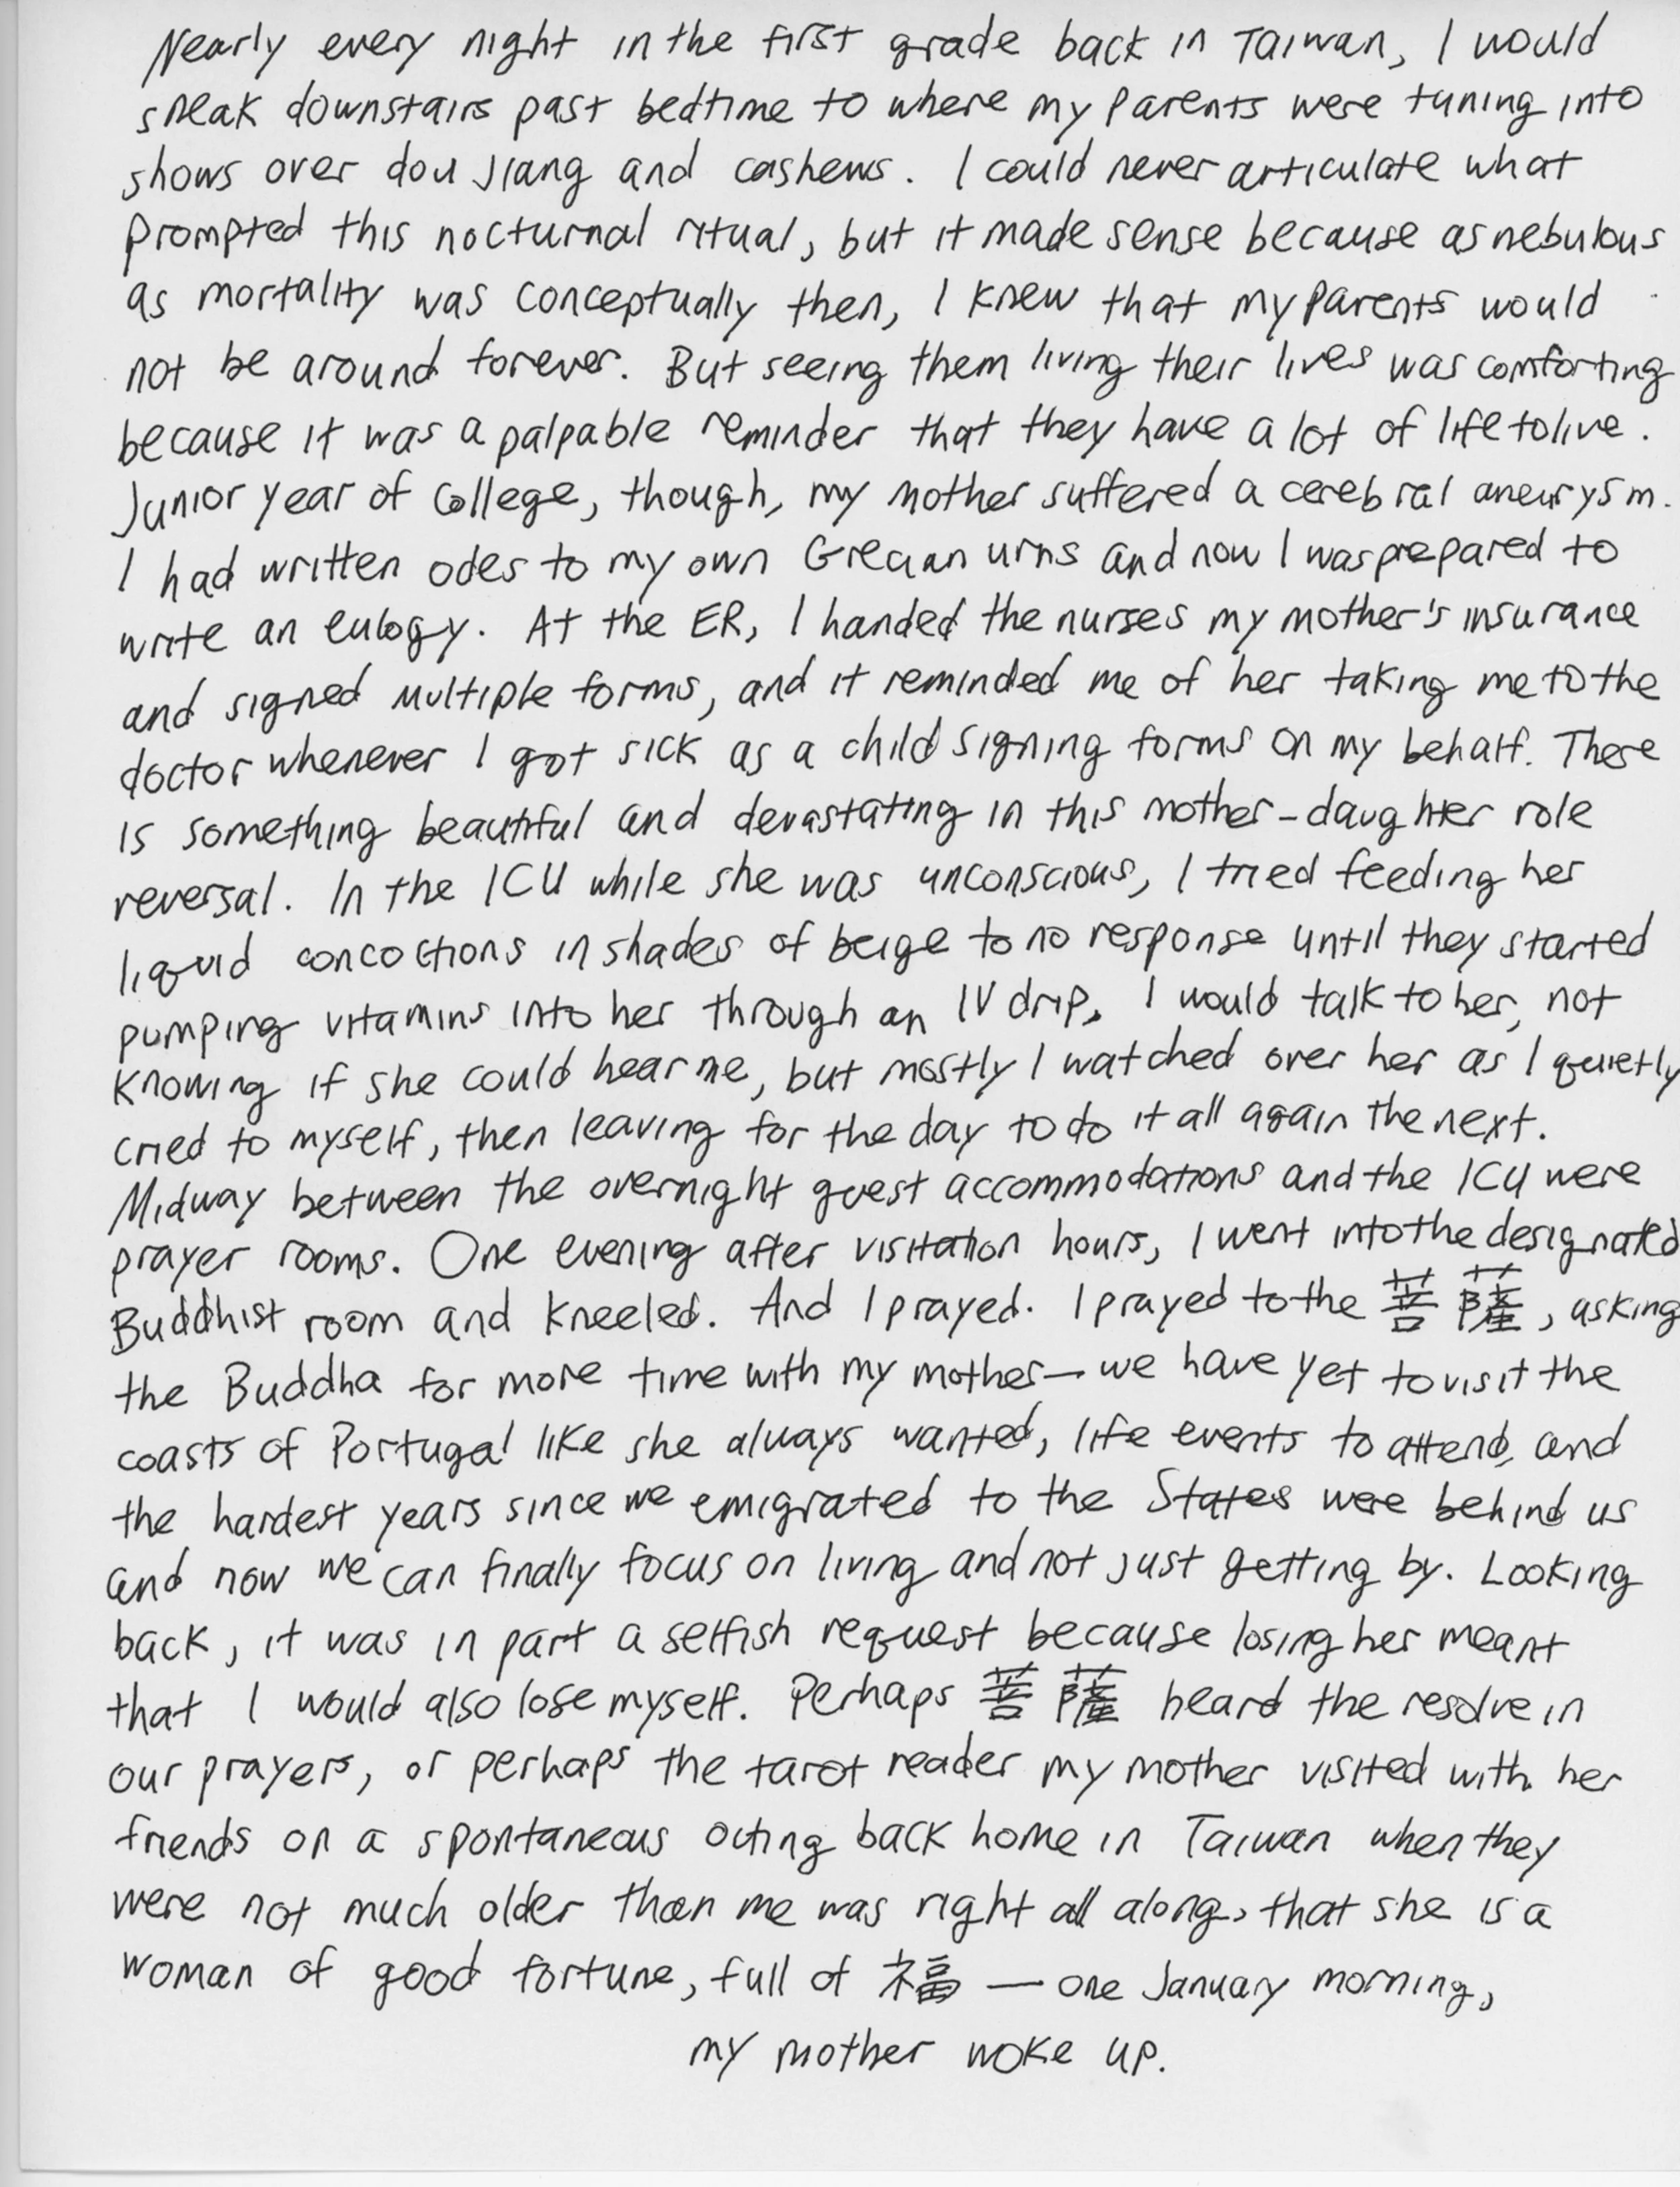 Nearly every night in the first grade back in Taiwan, I would
sneak downstairs past bedtime to where my parents were tuning into
shows over dou jiang and cashews. I could never articulate what
prompted this nocturnal ritual, but it made sense because as nebulous
as mortality was conceptually then, I knew that my parents would
not be around forever. But seeing them living their lives was comforting
because it was a palpable reminder that they have a lot of life to live.
Junior year of college, though, my mother suffered a cerebral aneurysm.
I had written odes to my own Grecian urns and now I was prepared to
write an eulogy. At the ER, I handed the nurses my mother's insurance
and signed multiple forms, and it reminded me of her taking me to the
doctor whenever I got sick as a child signing forms on my behalf. There
is something beautiful and devastating in this mother-daughter role
reversal. In the ICU while she was unconscious, I tried feeding her
liquid concoctions in shades of beige to no response until they started
pumping vitamins into her through an IV drip. I would talk to her, not
knowing if she could hear me, but mostly I watched over her as I quietly
cried to myself, then leaving for the day to do it all again the next.
Midway between the overnight guest accommodations and the ICU were
prayer rooms. One evening after visitation hours, I went into the designated
Buddhist room and kneeled. And I prayed. I prayed to the 菩薩, asking
the Buddha for more time with my mother—we have yet to visit the
coasts of Portugal like she always wanted, life events to attend, and
the hardest years since we emigrated to the States were behind us
and now we can finally focus on living and not just getting by. Looking
back, it was in part a selfish request because losing her meant
that I would also lose myself. Perhaps 菩薩 heard the resolve in
our prayers, or perhaps the tarot reader my mother visited with her
friends on a spontaneous outing back home in Taiwan when they
were not much older than me was right all along, that she is a
woman of good fortune, full of 福 — one January morning,
my mother woke up.